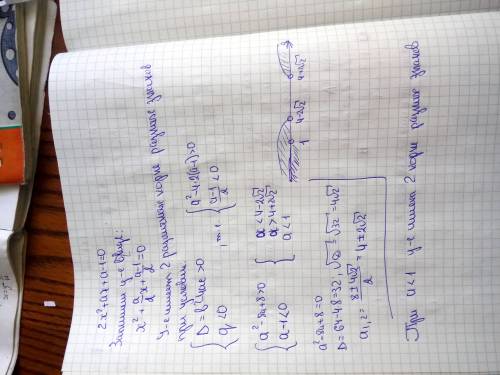 2x²+ax+a-1=0
Запишем у-е в виде:
x²+a/2x+(a-1)/2=0
У-е имеет 2 различных корня разных знаков
при условии:
{D=b²-4ac>0
{q<0, т.е. {a²-4·2(a-1)>0
{(a-1)/2<0
{a²-8a+8>0
{a-1<0
{a<4-2√2
a>4+2√2
{a<1
1 4-2√2 4+2√2 a
a²-8a+8=0
D=64-4·8=32; √D=√32=4√2
a₁,₂=(8±4√2)/2=4±2√2
При a<1 у-е имеет 2 корня разных знаков